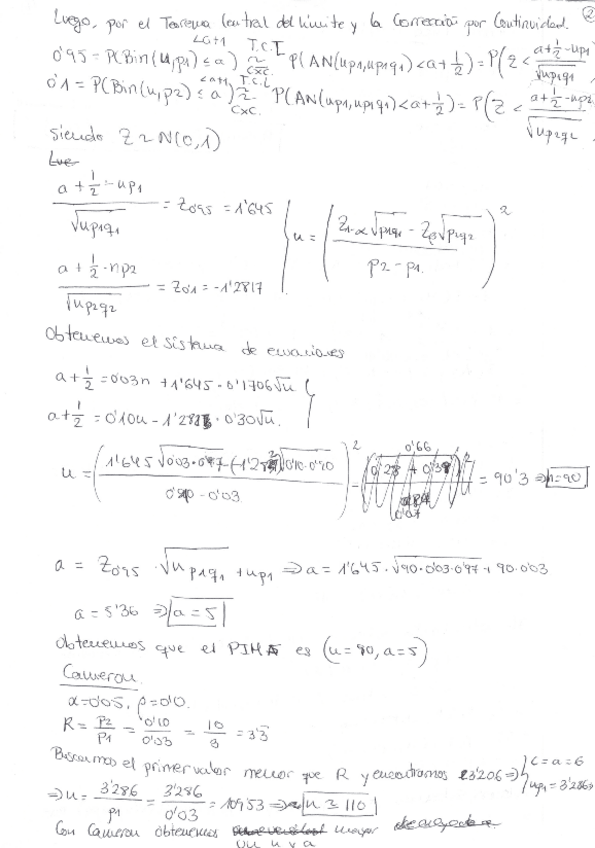 Luego, por el Teorema Central del Límite y la Corrección por Continuidad. ②
<a+1 T.C.L
0'95 = P(Bin(n,p1) ≤ a) ≈ P(AN(np1,np1q1) < a+1/2) = P(Z < (a+1/2-np1)/√np1q1)
CxC.
<a+1 T.C.L
0'1 = P(Bin(n,p2) ≤ a) ≈ P(AN(np1,np1q1) < a+1/2) = P(Z < (a+1/2-np2)/√np2q2)
CxC.
siendo Z ~ N(0,1)
Lue
(a + 1/2 - np1)/√np1q1 = Z0'95 = 1'645
n = ((Z1-α √p1q1 - Zβ √p2q2)/(p2 - p1))²
(a + 1/2 - np2)/√np2q2 = Z0'1 = -1'2817
Obtenemos el sistema de ecuaciones
a + 1/2 = 0'03n + 1'645 · 0'1706√n
a + 1/2 = 0'10n - 1'281 · 0'30√n
n = ((1'645 √0'03·0'97 - (-1'28) √0'10·0'90)/(0'10 - 0'03))² = 90'3 ⇒ n=90
a = Z0'95 · √np1q1 + np1 ⇒ a = 1'645 · √90·0'03·0'97 + 90·0'03
a = 5'36 ⇒ a = 5
Obtenemos que el es (n = 90, a = 5)
Cameron.
α=0'05, β=0'10.
R = p2/p1 = 0'10/0'03 = 10/3 = 3'3
Buscamos el primer valor menor que R y encontramos 3'206 ⇒ { c = a = 6
np1 = 3'286
⇒ n = 3'286/p1 = 3'286/0'03 = 109'53 ⇒ n ≃ 110
Con Cameron obtenemos mayor
un n y a